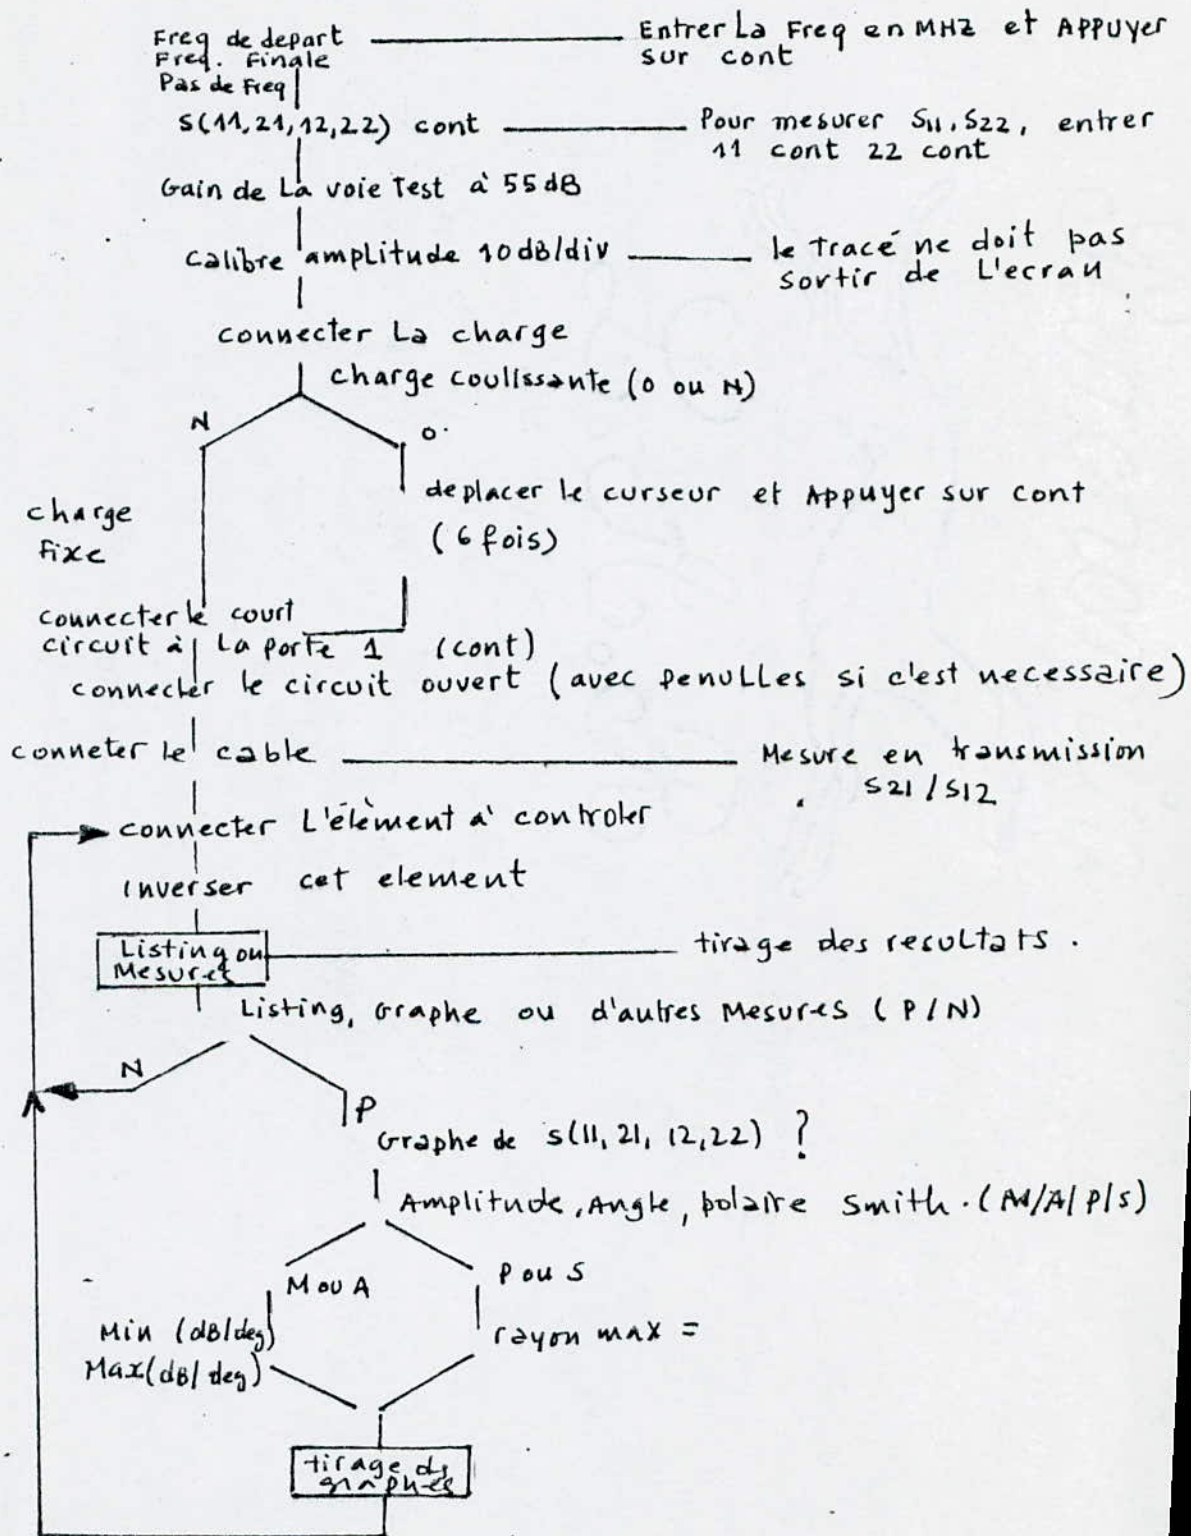 Freq de depart
Freq. Finale
Pas de Freq
Entrer La Freq en MHZ et APPUYER
sur cont
S(11,21,12,22) cont
Pour mesurer S11, S22, entrer
11 cont 22 cont
Gain de La voie Test à 55 dB
Calibre amplitude 10 dB/div
le tracé ne doit pas
sortir de L'ecran
connecter La charge
charge coulissante (O ou N)
N
O
charge
fixe
deplacer le curseur et Appuyer sur cont
(6 fois)
connecter le court
circuit à La Porte 1 (cont)
connecter le circuit ouvert (avec penulles si c'est necessaire)
conneter le cable
Mesure en transmission
S21/S12
connecter L'élèment a' controler
inverser cet element
Listing ou
Mesures
tirage des resultats.
Listing, Graphe ou d'autres Mesures (P/N)
N
P
Graphe de S(11, 21, 12,22) ?
Amplitude, Angle, polaire Smith. (M/A/P/S)
M ou A
P ou S
Min (dB/deg)
Max(dB/deg)
rayon max =
tirage ds
graphes